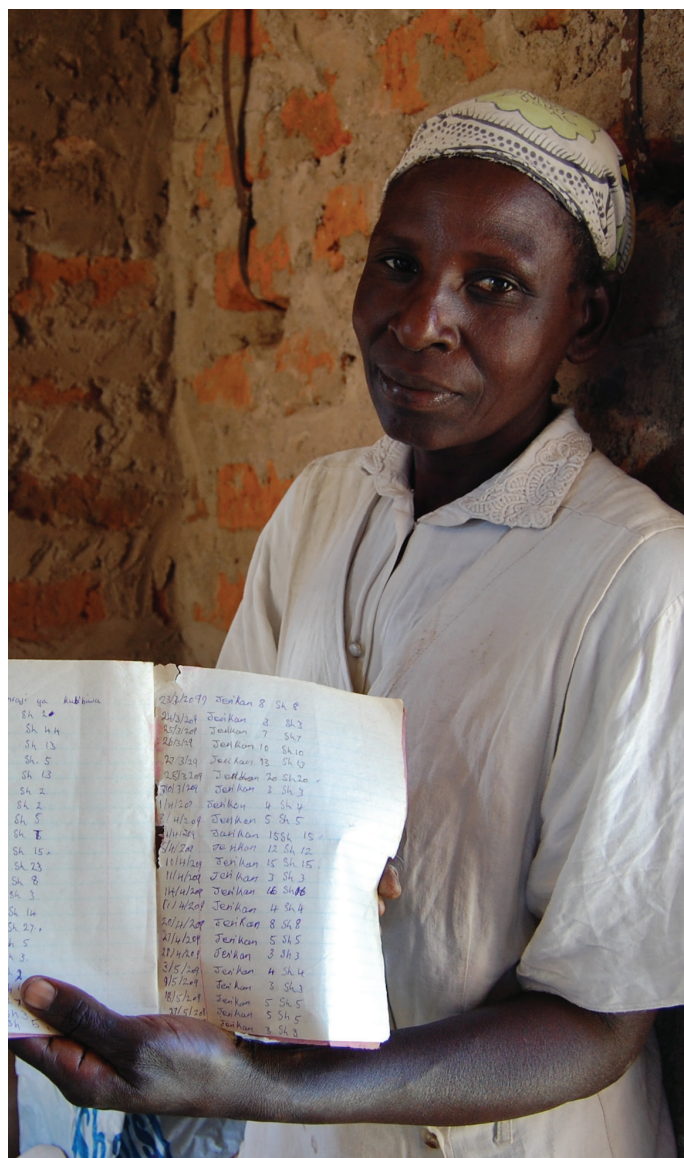 ya kulikima
Sh 2
Sh 44
Sh 13
Sh. 5
Sh 13
Sh 2
Sh 2
Sh 5
Sh
Sh 15.
Sh 23
Sh 8
Sh 3
Sh 14
Sh 27.
Sh 5
Sh 3
2
Sh 5
Jerikan 8 Sh 8
24/3/209 Jerikan 3 Sh3
25/3/209 Jerikan 7 Sh7
26/3/29 Jerikan 10 Sh 10
27/3/29 Jerikan 13 Sh 13
28/3/209 Jerikan 20 Sh20.
30/3/209 Jerikan 3 Sh 3
1/4/209 Jerikan 4 Sh 4
/4/209 Jerikan 5 Sh 5
/4/209 Jarikan 15 Sh 15.
/4/209 Jerikan 12 Sh 12
11/4/209 Jerikan 15 Sh 15.
11/4/209 Jerikan 3 Sh 3
14/4/209 Jerikan 16 Sh 16
17/4/209 Jerikan 4 Sh4
20/4/209 Jerikan 8 Sh8
27/4/209 Jerikan 5 Sh5
28/4/209 Jerikan 3 Sh3
3/5/209 Jerikan 4 Sh4
9/5/209 Jerikan 3 Sh3
18/5/209 Jerikan 5 Sh 5
27/5/209 Jerikan 5 Sh 5
Jerikan 3 Sh 3